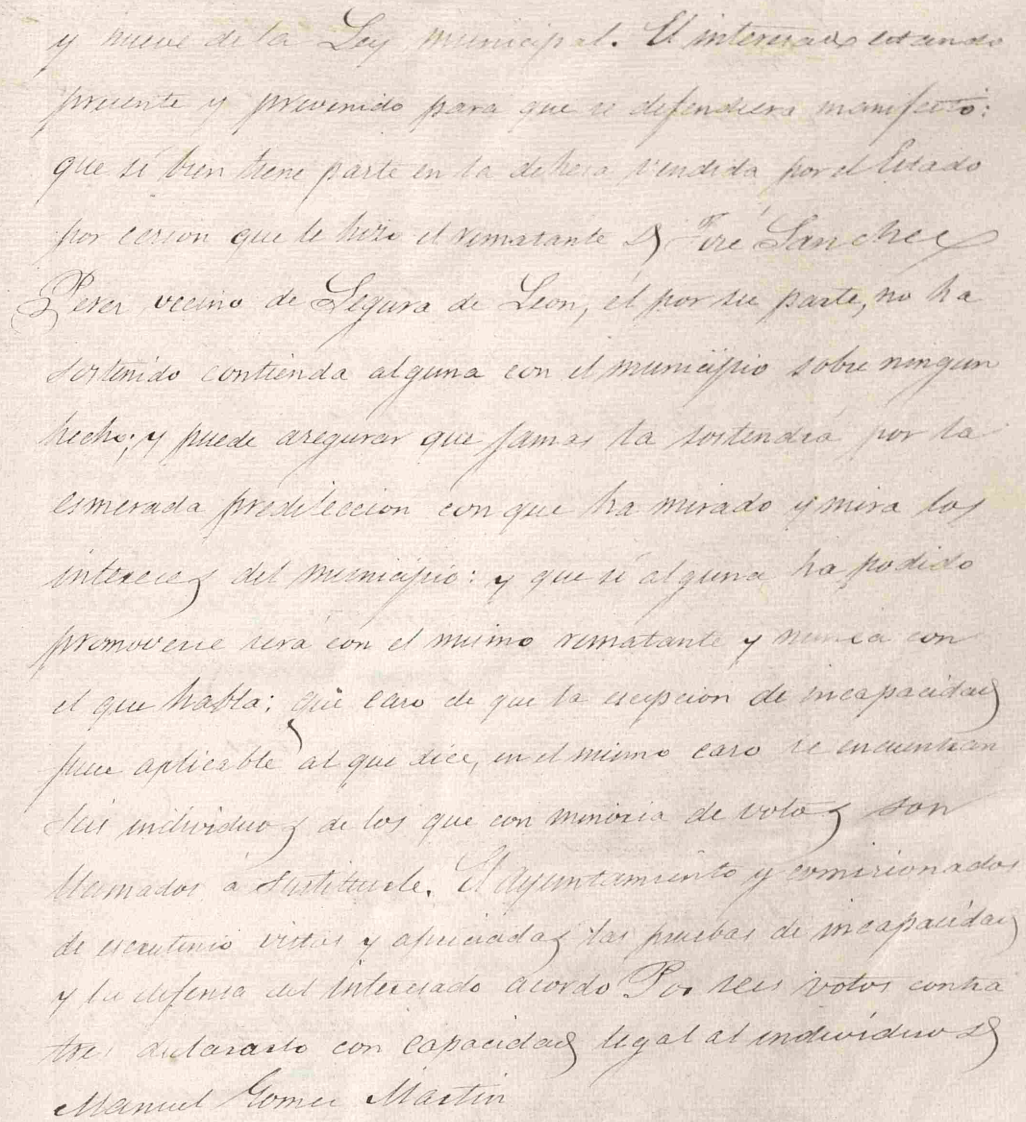 y nueve de la Ley municipal. El interesado estando
presente y prevenido para que se defendiera manifestó:
que si bien tiene parte en la dehesa vendida por el Estado
por cesion que le hizo el rematante D José Sanchez
Perez vecino de Segura de Leon, el por su parte, no ha
sostenido contienda alguna con el municipio sobre ningun
hecho; y puede asegurar que jamas la sostendrá por la
esmerada predileccion con que ha mirado y mira los
intereces del municipio: y que si alguna ha podido
promoverse será con el mismo rematante y nunca con
el que habla; que caso de que la escepcion de incapacidad
fuese aplicable al que dice, en el mismo caso se encuentran
seis individuos de los que con minoria de votos son
llamados á sustituirle. El Ayuntamiento y comisionados
de escrutinio vistas y apreciadas las pruebas de incapacidad
y la defensa del interesado acordo Por seis votos contra
tres declararlo con capacidad legal al individuo D
Manuel Gomez Martin